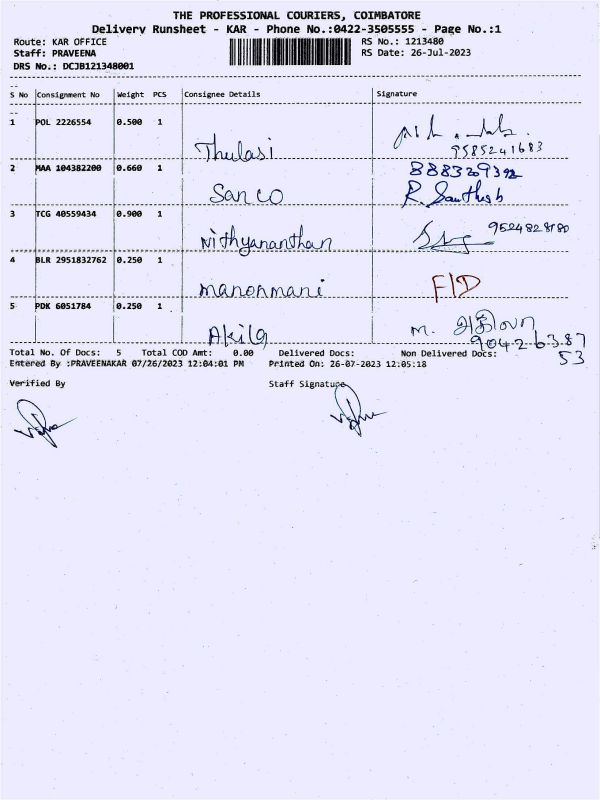 THE PROFESSIONAL COURIERS, COIMBATORE
Delivery Runsheet - KAR - Phone No.:0422-3505555 - Page No.:1
Route: KAR OFFICE RS No.: 1213480
Staff: PRAVEENA RS Date: 26-Jul-2023
DRS No.: DCJB121348001
S No Consignment No Weight PCS Consignee Details Signature
1 POL 2226554 0.500 1
Thulasi 9585241683
2 MAA 104382200 0.660 1
Sanco R. Santhosh
3 TCG 40559434 0.900 1
Nithyananthan 9524828780
4 BLR 2951832762 0.250 1
manonmani F/D
5 PDK 6051784 0.250 1
Akila m. அகிலா
90426 3387
53
Total No. Of Docs: 5 Total COD Amt: 0.00 Delivered Docs: Non Delivered Docs:
Entered By :PRAVEENAKAR 07/26/2023 12:04:01 PM Printed On: 26-07-2023 12:05:18
Verified By Staff Signature